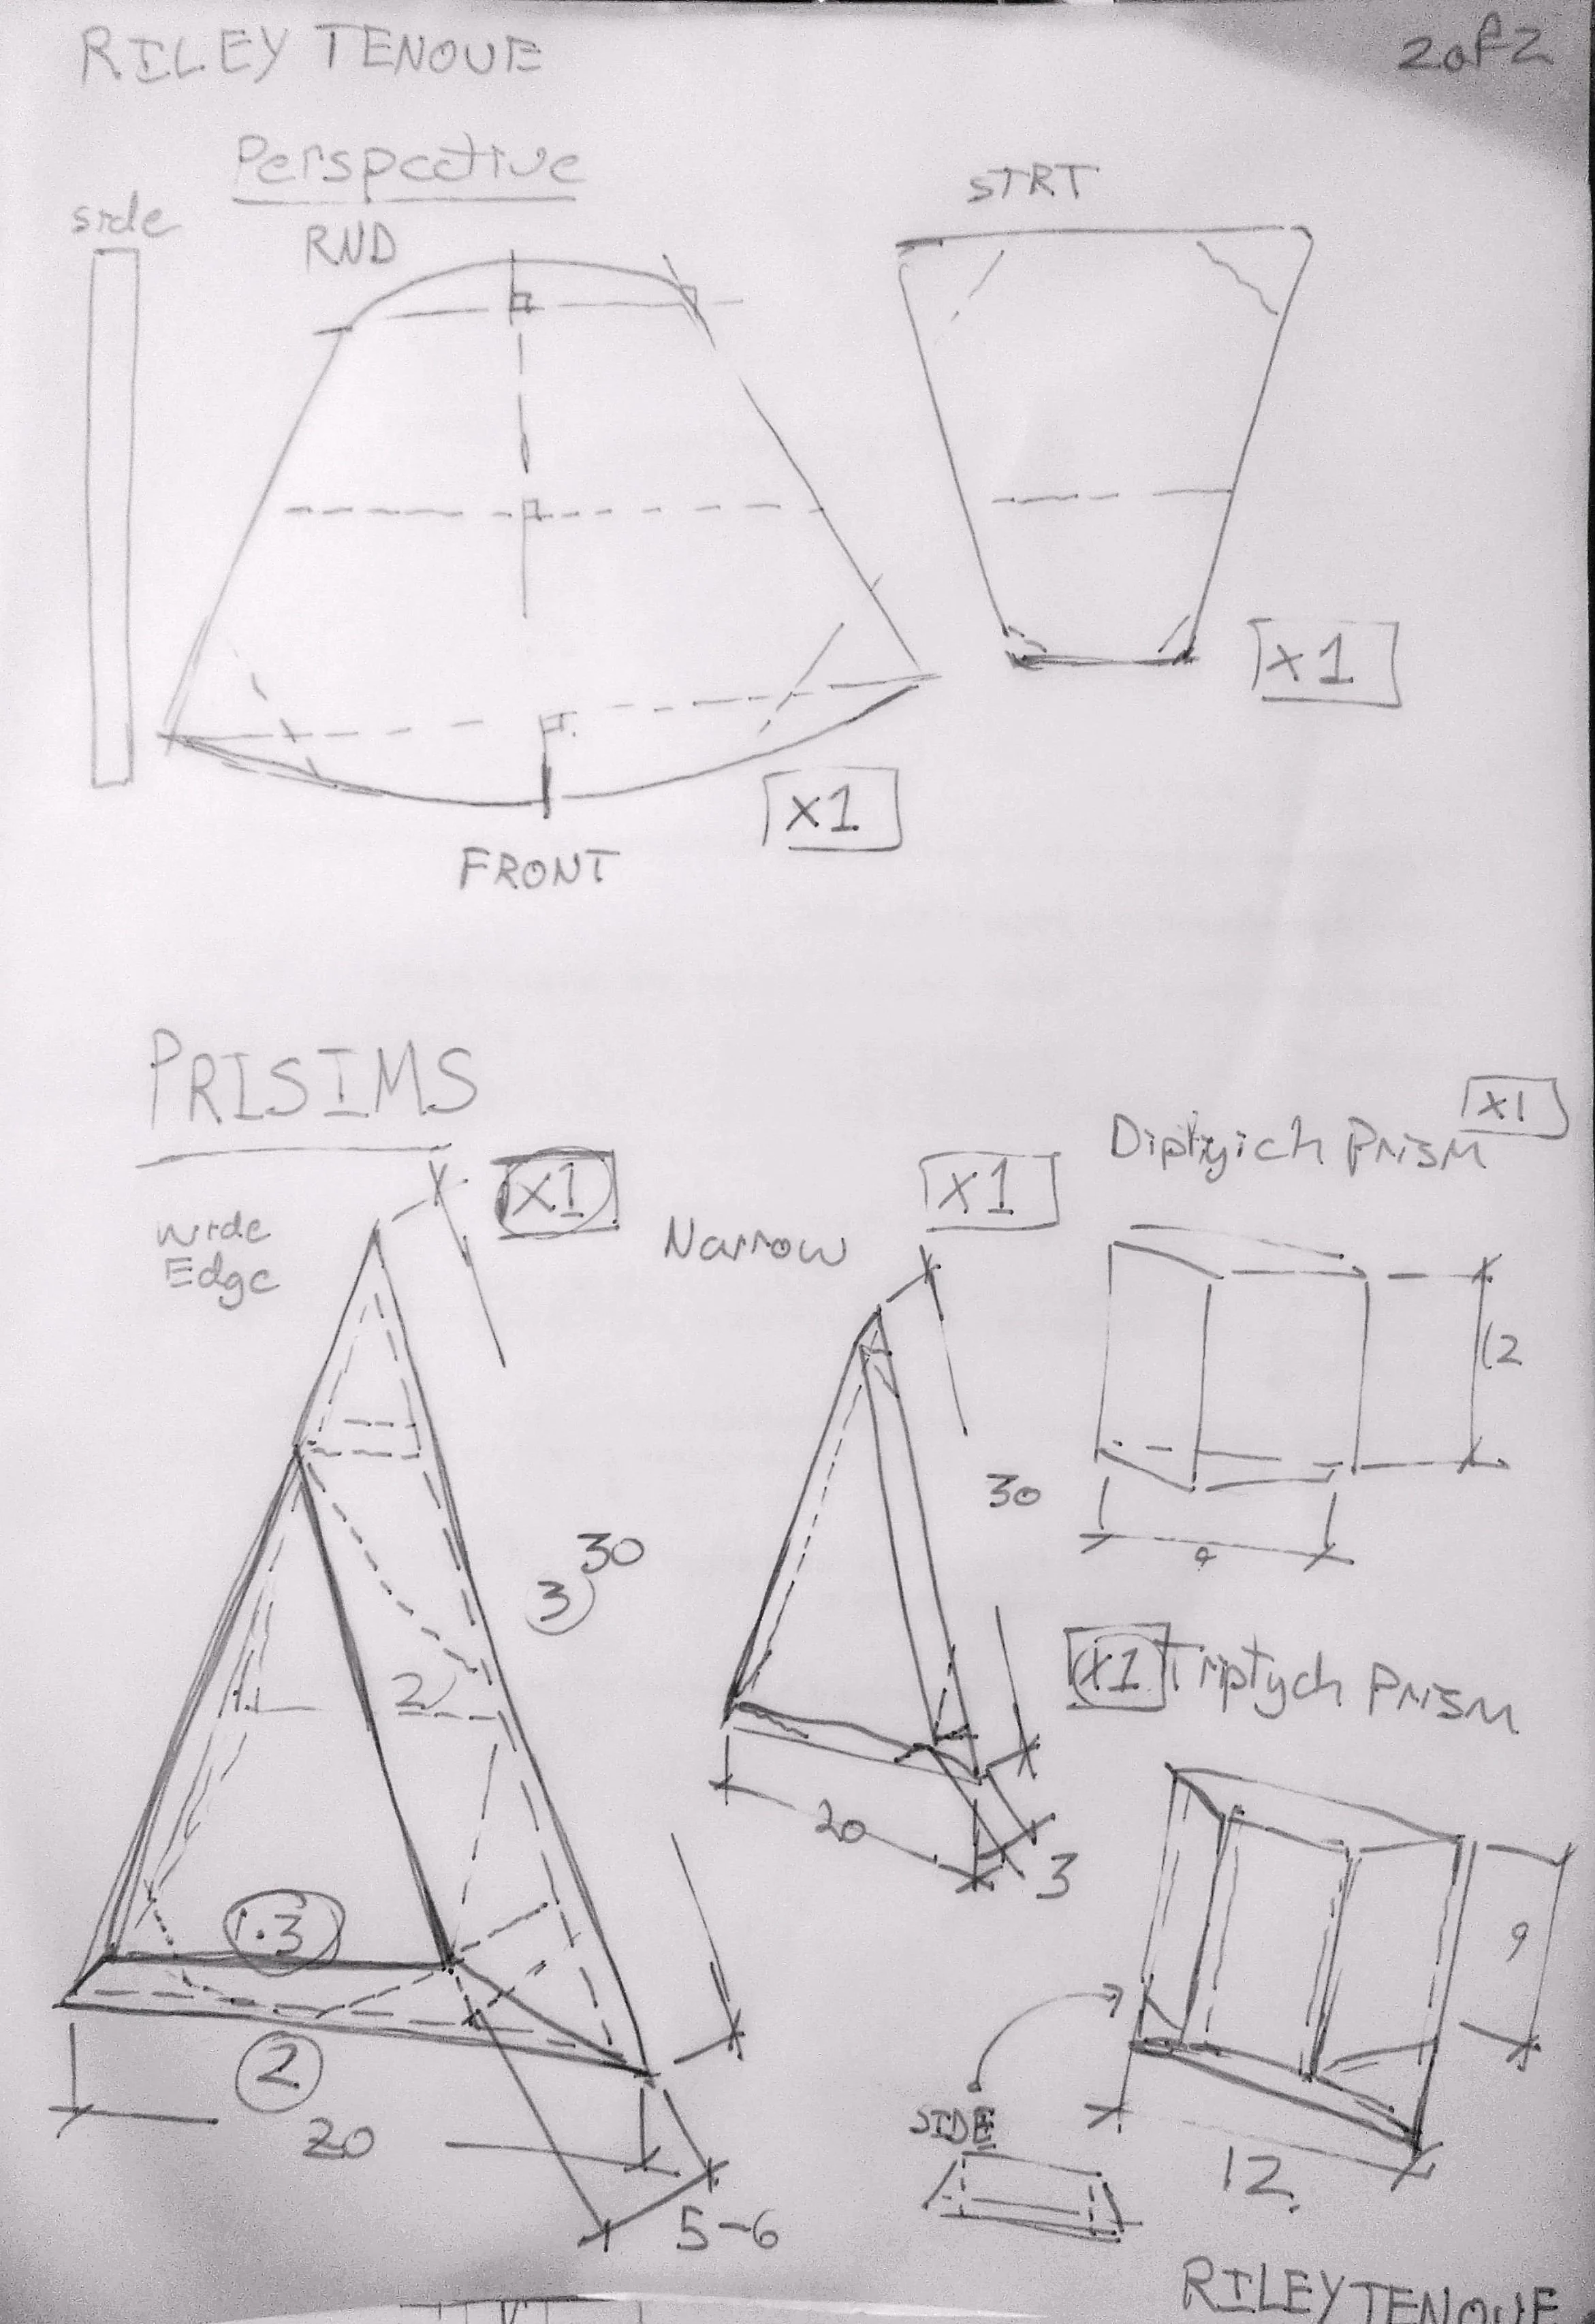 RILEY TENOUE
2 of 2
Perspective
side
RND
STRT
x1
x1
FRONT
PRISIMS
x1
Wide
Edge
Narrow
x1
Diptyich Prism
x1
12
30
30
3
9
2
x1
Triptych Prism
20
3
.3
9
2
20
SIDE
12
5-6
RILEY TENOUE